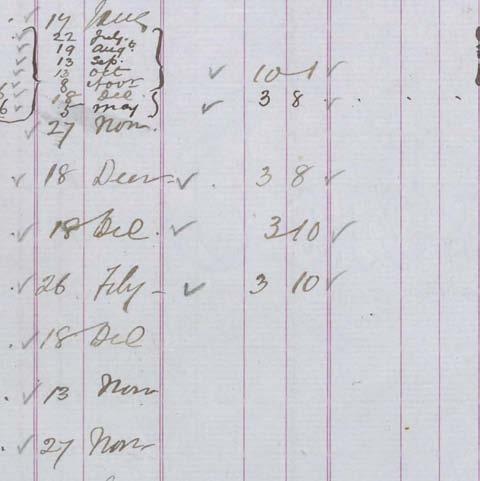 ✓ 14 Jany
✓ 22 July
✓ 19 Augt
✓ 13 Sep. ✓ 10 1 ✓
✓ 13 Oct
✓ 8 Novr
18 Dec ✓ 3 8 .
6 5 May
✓ 27 Nov.
✓ 18 Decr ✓ 3 8 ✓
✓ 18 Dec. ✓ 3 10 ✓
✓ 26 Feby ✓ 3 10 ✓
✓ 18 Dec
✓ 13 Nov
✓ 27 Nov